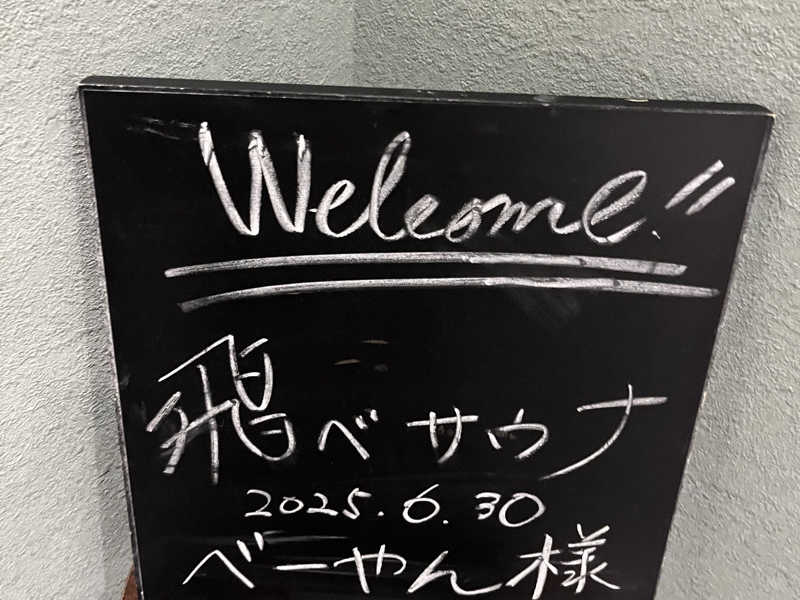 Welcome."
飛べサウナ
2025.6.30
べーやん様